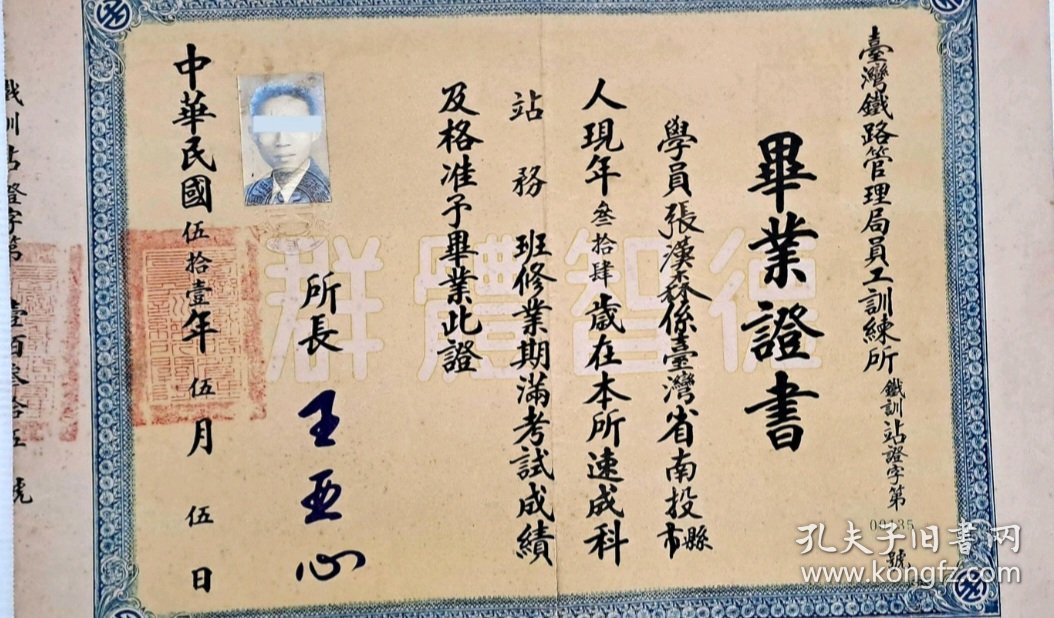 臺灣鐵路管理局員工訓練所
鐵訓站證字第00135號
畢業證書
學員張漢森係臺灣省南投縣市
人現年叁拾肆歲在本所速成科
站務班修業期滿考試成績
及格准予畢業此證
所長 王亚心
中華民國伍拾壹年伍月伍日
鐵訓站證字第壹百叁拾五號
群體智德
孔夫子旧書网
www.kongfz.com